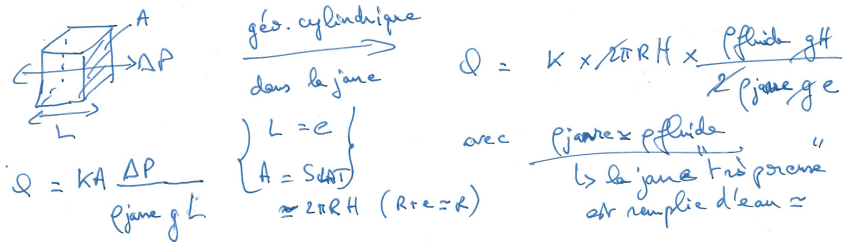 A
ΔP
L
Q = KA ΔP / ρjarre g L
géo. cylindrique
dans la jarre
{ L = e
A = SLAT }
≃ 2πRH (R+e ≃ R)
Q = K × 2πRH × ρfluide gH / 2 ρjarre g e
avec ρjarre ≃ ρfluide
↳ la jarre "très poreuse"
est remplie d'eau ≃